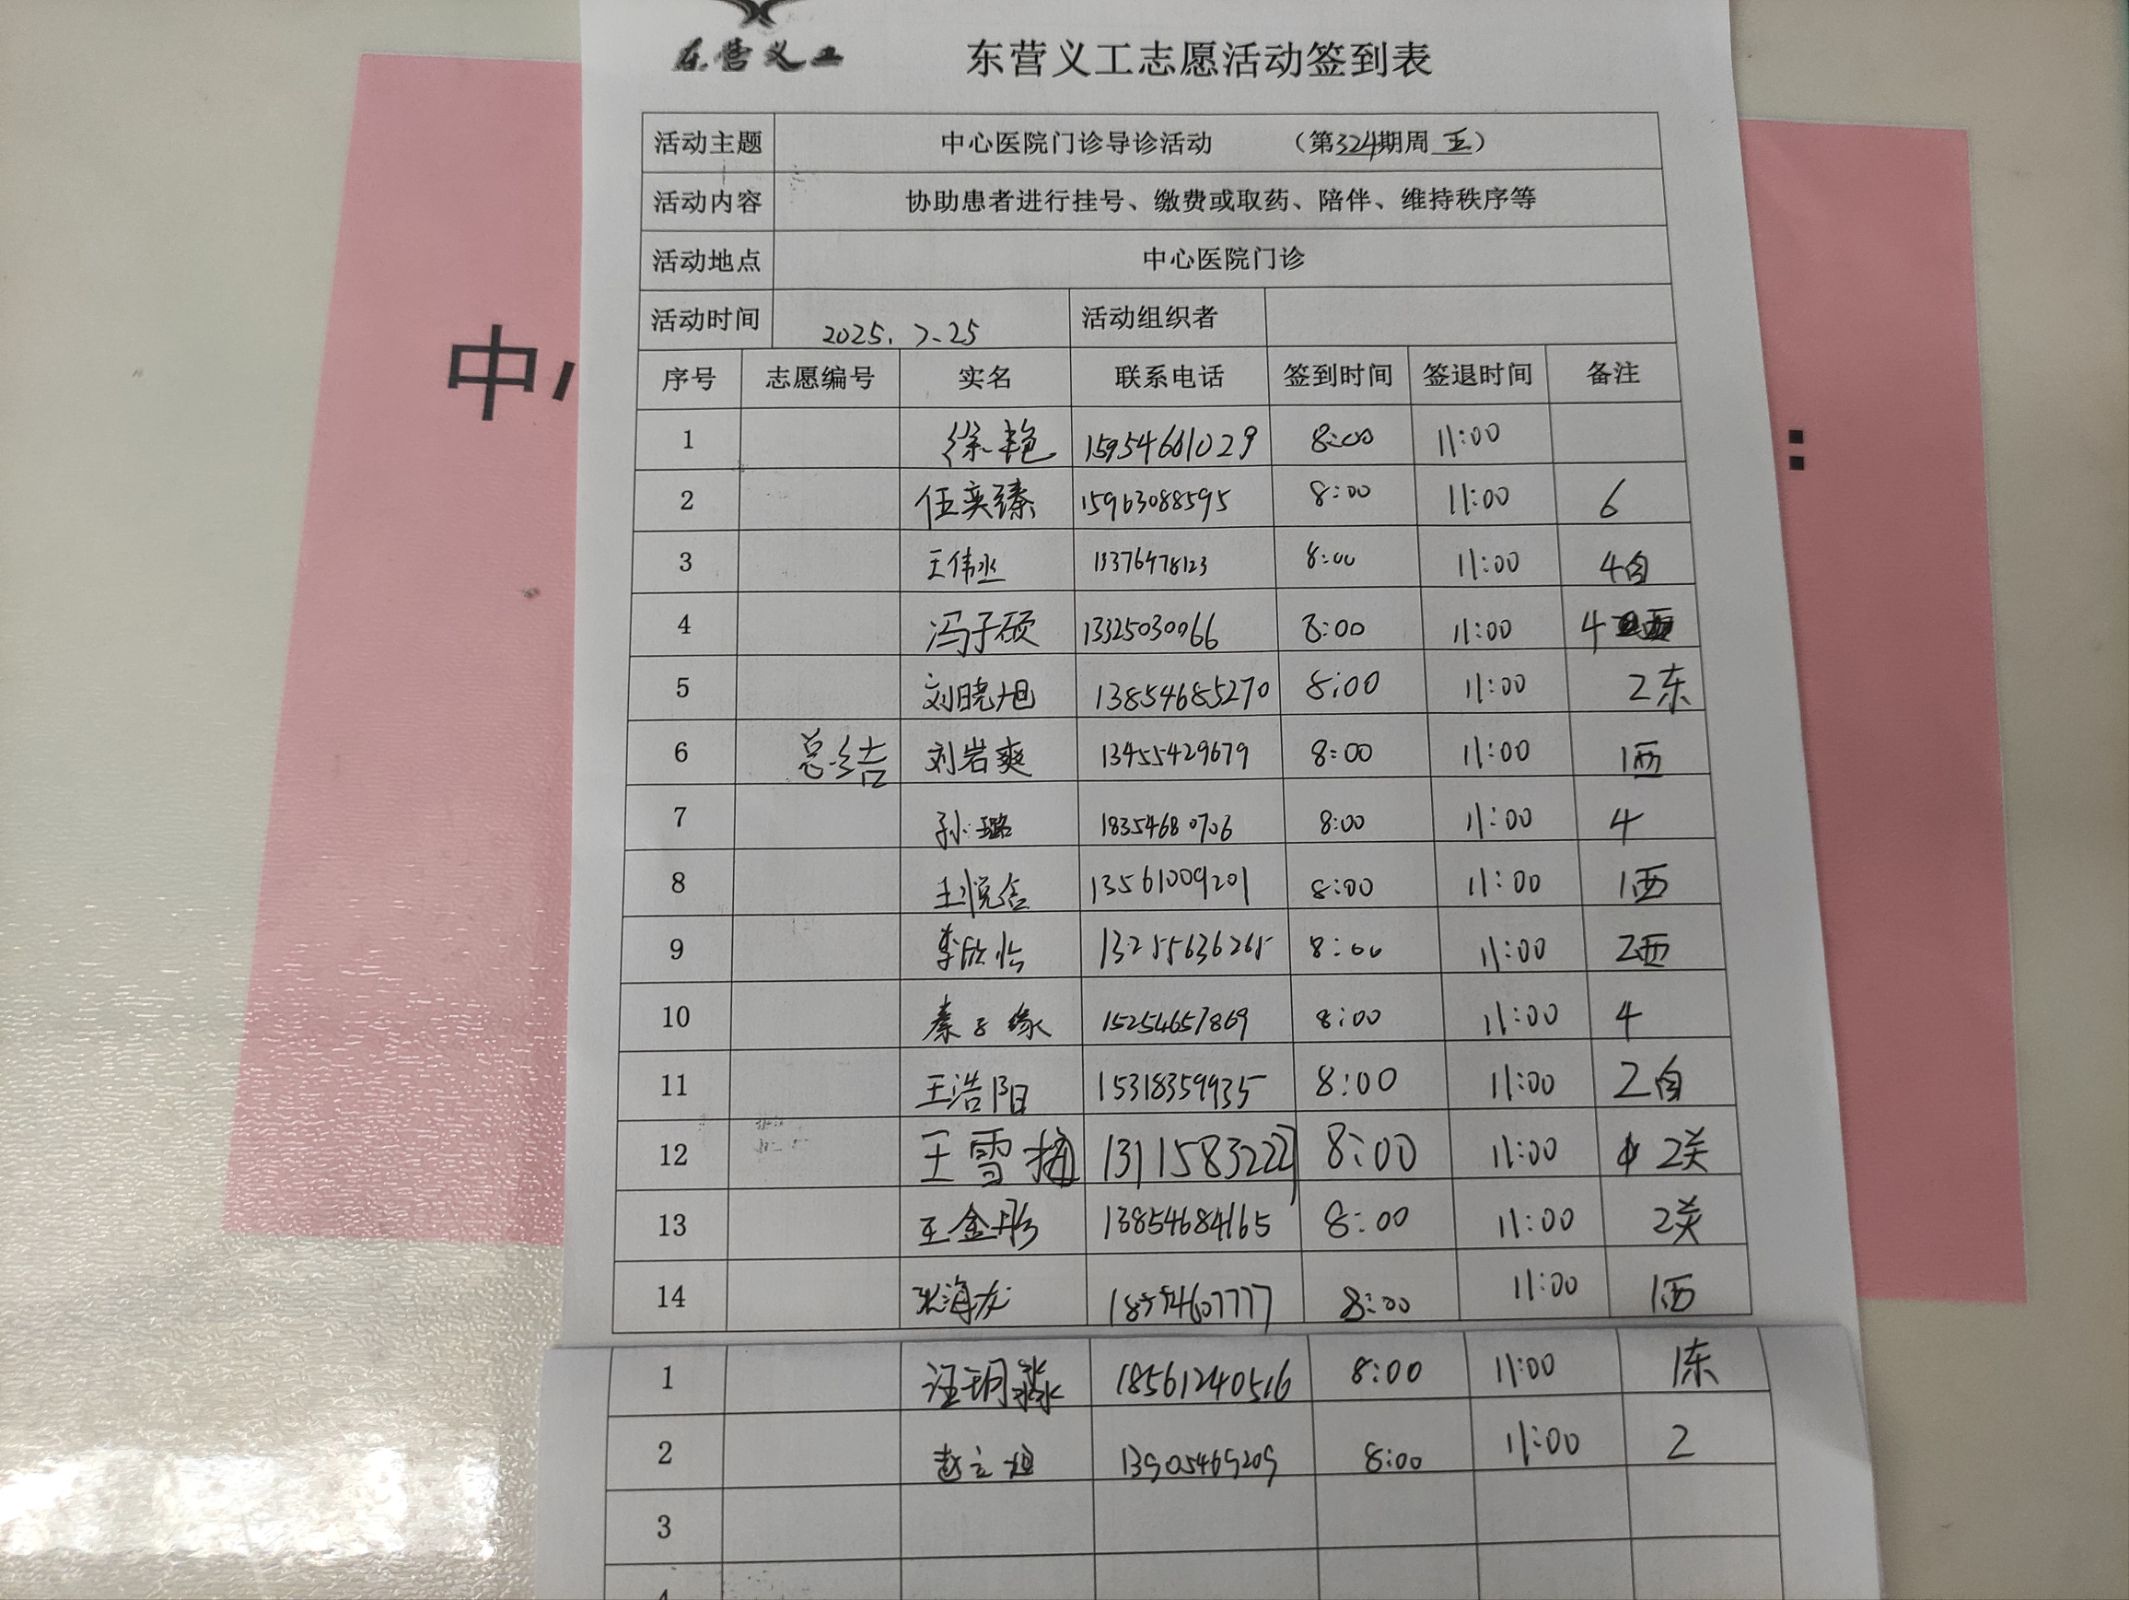 东营义工 东营义工志愿活动签到表
活动主题 中心医院门诊导诊活动 （第324期周五）
活动内容 协助患者进行挂号、缴费或取药、陪伴、维持秩序等
活动地点 中心医院门诊
活动时间 2025.7.25 活动组织者
序号 志愿编号 实名 联系电话 签到时间 签退时间 备注
1 徐艳 15954661029 8:00 11:00
2 伍奕臻 15963088595 8:00 11:00 6
3 王伟丞 8:00 11:00 4自
4 冯子硕 13325030066 8:00 11:00 4
5 刘晓旭 13854685270 8:00 11:00 2东
6 总结 刘岩爽 13455429679 8:00 11:00 1西
7 孙璐 18354680706 8:00 11:00 4
8 王悦含 13561009201 8:00 11:00 1西
9 李欣怡 13255636265 8:00 11:00 2西
10 秦子缘 15254657869 8:00 11:00 4
11 王浩阳 15318359935 8:00 11:00 2自
12 王雪 13115832227 8:00 11:00 2关
13 王金彤 13854684165 8:00 11:00 2关
14 张海龙 18554607777 8:00 11:00 1西
1 汪玥淼 18561240516 8:00 11:00 1东
2 13905469209 8:00 11:00 2
3
4
中心
: